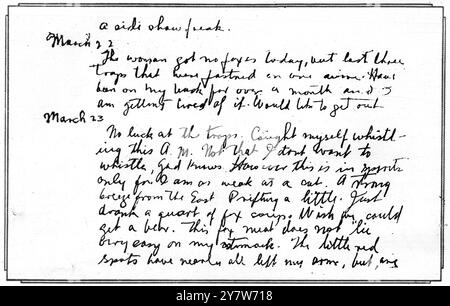 a side show freak.
March 22
The woman got no foxes today, but lost three
traps that were fastened on one airme. Have
been on my back for over a month and I
am getting tired of it. Would like to get out
March 23
No luck at the traps. Caught myself whistl-
ing this A. M. Not that I dont want to
whistle, God knows. However this is in
only for I am as weak as a cat. A strong
breeze from the East Drifting a little. Just
drank a quart of fox soup. Wish we could
get a bear. This fox meat does not lie
very easy on my stomach. The little red
spots have nearly all left my arms, but my
alamy
Image ID: 2YW7718
www.alamy.com